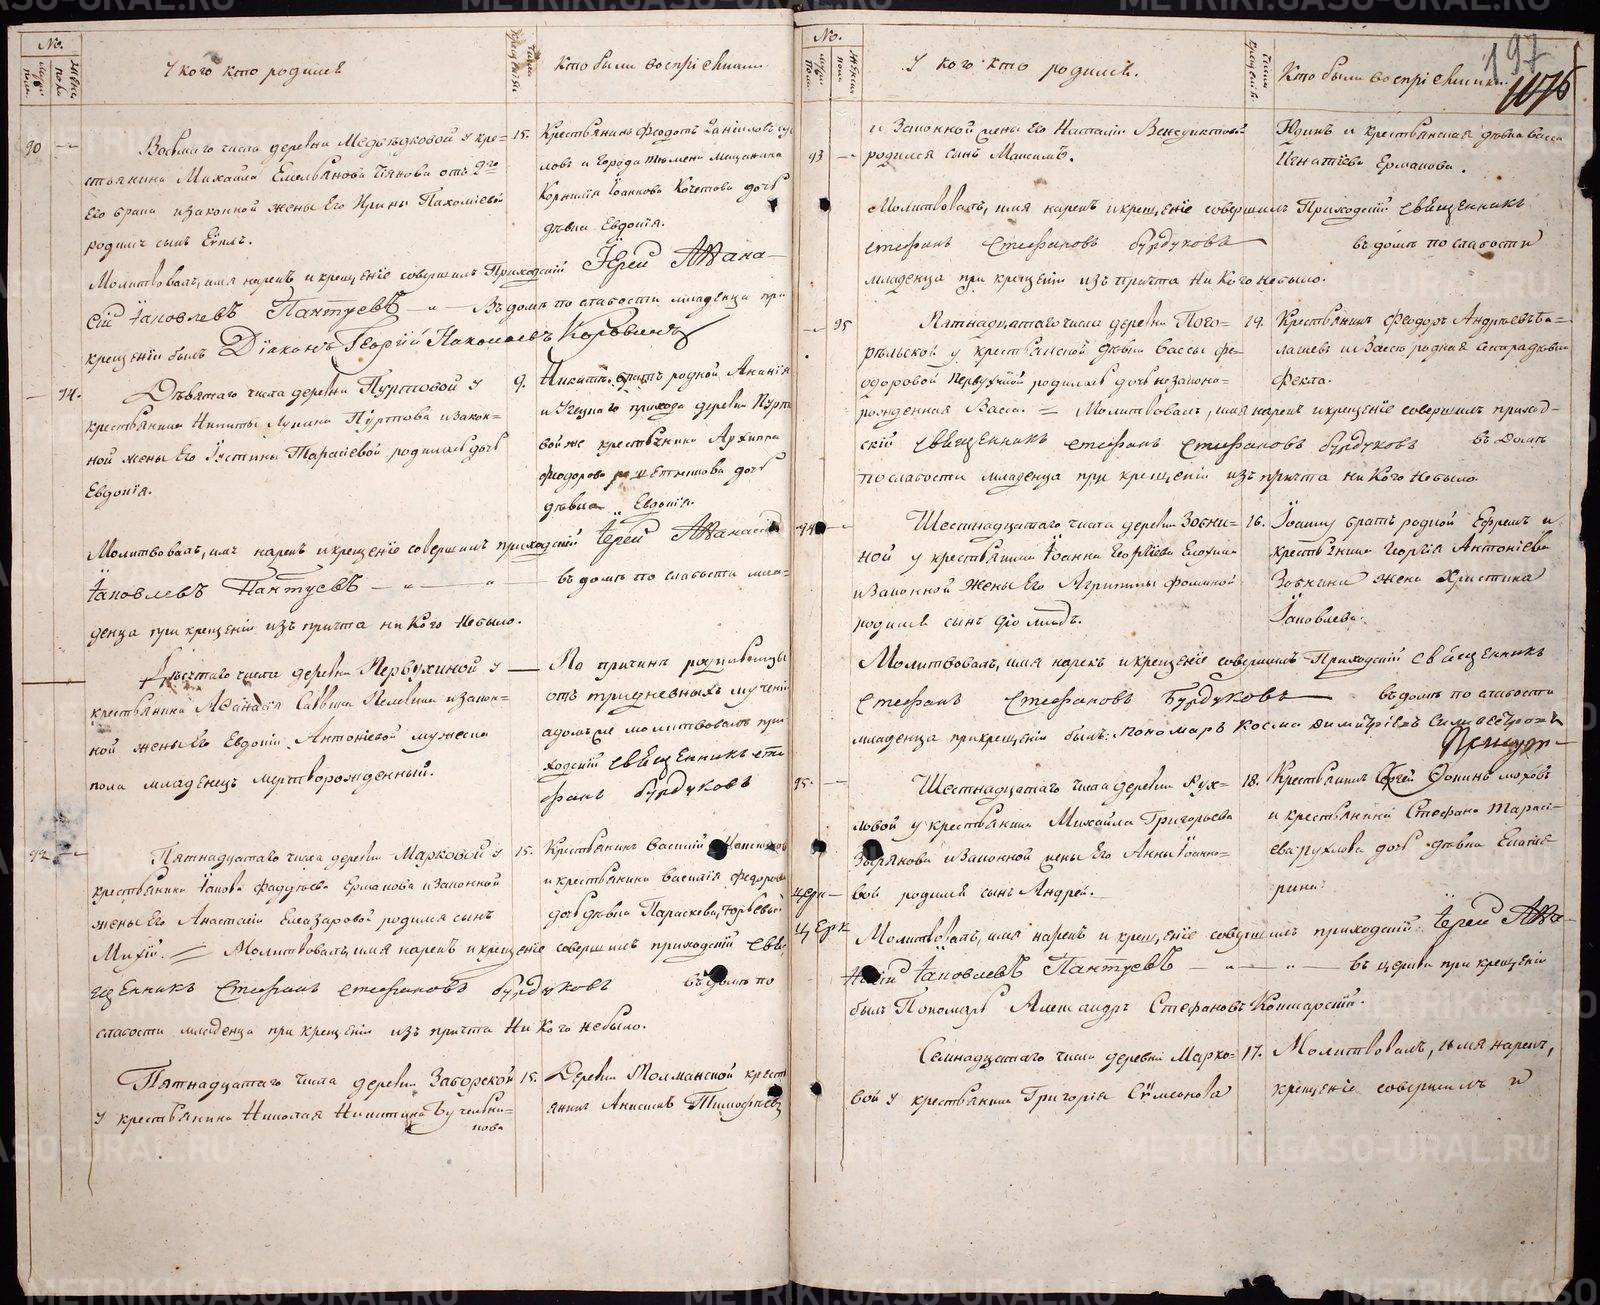 No.
мужеска пола
женска пола
У кого кто родился
Число крещенія
Кто были воспріемники
90
Восьмаго числа деревни Медвѣдковой у кре-
15.
стьянина Михаила Емельянова
отъ 2го
его брака и законной жены его Ирины Пахоміевой
родился сынъ
Крестьянинъ Феодотъ Даніиловъ
ловъ и города Тюмени мещанина
Корнилія Іоаннова Кочетова дочь
дѣвка Евдокія.
Молитвовалъ, имя нарекъ и крещеніе совершилъ Приходскій Іерей Аѳана-
сій Іаковлевъ Пантуевъ — „ — Въ домѣ по слабости младенца при
крещеніи былъ Діаконъ Георгій Николаевъ Коровинъ
94.
Девятаго числа деревни Пуртовой у
9.
крестьянина Никиты Лукина Пуртова и закон-
ной жены его Іустины Тарасіевой родилась дочь
Евдокія.
Никитѣ братъ родной Ананія
и Усецкаго прихода деревни Пурто
вой же крестьянина Архиппа
Феодорова дочь
дѣвка Евдокія.
Молитвовалъ, имя нарекъ и крещеніе совершилъ приходскій Іерей Аѳанасій
Іаковлевъ Пантуевъ — „ — „ — въ домѣ по слабости мла-
денца при крещеніи изъ причта никого небыло.
Десятаго числа деревни Первухиной у —
крестьянина Аѳанасія Саввина Пелевина и закон-
ной жены его Евдокіи Антоніевой мужеска
пола младенецъ мертворожденный.
По причинѣ родильницы
отъ тридневныхъ мученій
а домъ молитвовалъ при-
ходскій священникъ Сте
фанъ Бурдуковъ
92
Пятнадцатаго числа деревни Марковой у
15.
крестьянина Іакова Фадѣева Ермакова и законной
жены его Анастасіи Елеазаровой родился сынъ
Крестьянинъ Василій
и крестьянина Василія Федорова
дочь дѣвка Параскева Юрьевыхъ
— Молитвовалъ, имя нарекъ и крещеніе совершилъ приходскій свя
щенникъ Стефанъ Стефановъ Бурдуковъ въ домѣ по
слабости младенца при крещеніи изъ причта никого небыло.
Пятнадцатаго числа деревни Заборской
15.
у крестьянина Николая Никитина Бучельни-
кова
Деревни Молманской крест
янинъ Анисимъ Тимофеевъ
197
1075
No.
мужеска пола
женска пола
У кого кто родился.
Число крещенія
Кто были воспріемники.
и законной жены его Настасіи Венедиктовой
93
родился сынъ Максимъ.
Юдинъ и крестьянская дѣвка Васса
Игнатіева Ермакова.
Молитвовалъ, имя нарекъ и крещеніе совершилъ Приходскій священникъ
Стефанъ Стефановъ Бурдуковъ — въ домѣ по слабости
младенца при крещеніи изъ причта никого небыло.
95
Пятнадцатаго числа деревни Пого-
19.
рѣльской у крестьянской дѣвки Вассы Фе-
одоровой Первухиной родилась дочь незаконо-
рожденная Васса.
Крестьянинъ Феодоръ Андреевъ Ба-
лашевъ и Вассѣ родная сестра дѣвка
Фекла.
= Молитвовалъ, имя нарекъ и крещеніе совершилъ приход-
скій священникъ Стефанъ Стефановъ Бурдуковъ въ домѣ
по слабости младенца при крещеніи изъ причта никого небыло.
94
Шестнадцатаго числа деревни Зобни-
16.
ной у крестьянина Іоанна Георгіева
и законной жены его Агрипины Фоминой
родился сынъ Філиппъ.
Іоанну братъ родной Ефремъ и
крестьянина Георгія Антоніева
Зобнина жена Христина
Іаковлева.
Молитвовалъ, имя нарекъ и крещеніе совершилъ Приходскій священникъ
Стефанъ Стефановъ Бурдуковъ — въ домѣ по слабости
младенца при крещеніи былъ: пономарь Косма Димитріевъ
95.
Шестнадцатаго числа деревни Рух-
18.
ловой у крестьянина Михаила Григорьева
Зырянова и законной жены его Анны Іоанно-
вой родился сынъ Андрей.
Крестьянинъ Сергей Фокинъ Моховъ
и крестьянина Стефана Тараси-
ева Рухлова дочь дѣвка Екате-
рина.
Молитвовалъ, имя нарекъ и крещеніе совершилъ приходскій Іерей Аѳа-
насій Іаковлевъ Пантуевъ — „ — „ — въ церкви при крещеніи
былъ Пономарь Александръ Стефановъ Комарскій.
Семнадцатаго числа деревни Марко-
17.
вой у крестьянина Григорія Симеонова
Молитвовалъ, имя нарекъ,
крещеніе совершилъ и
METRIKI.GASO-URAL.RU